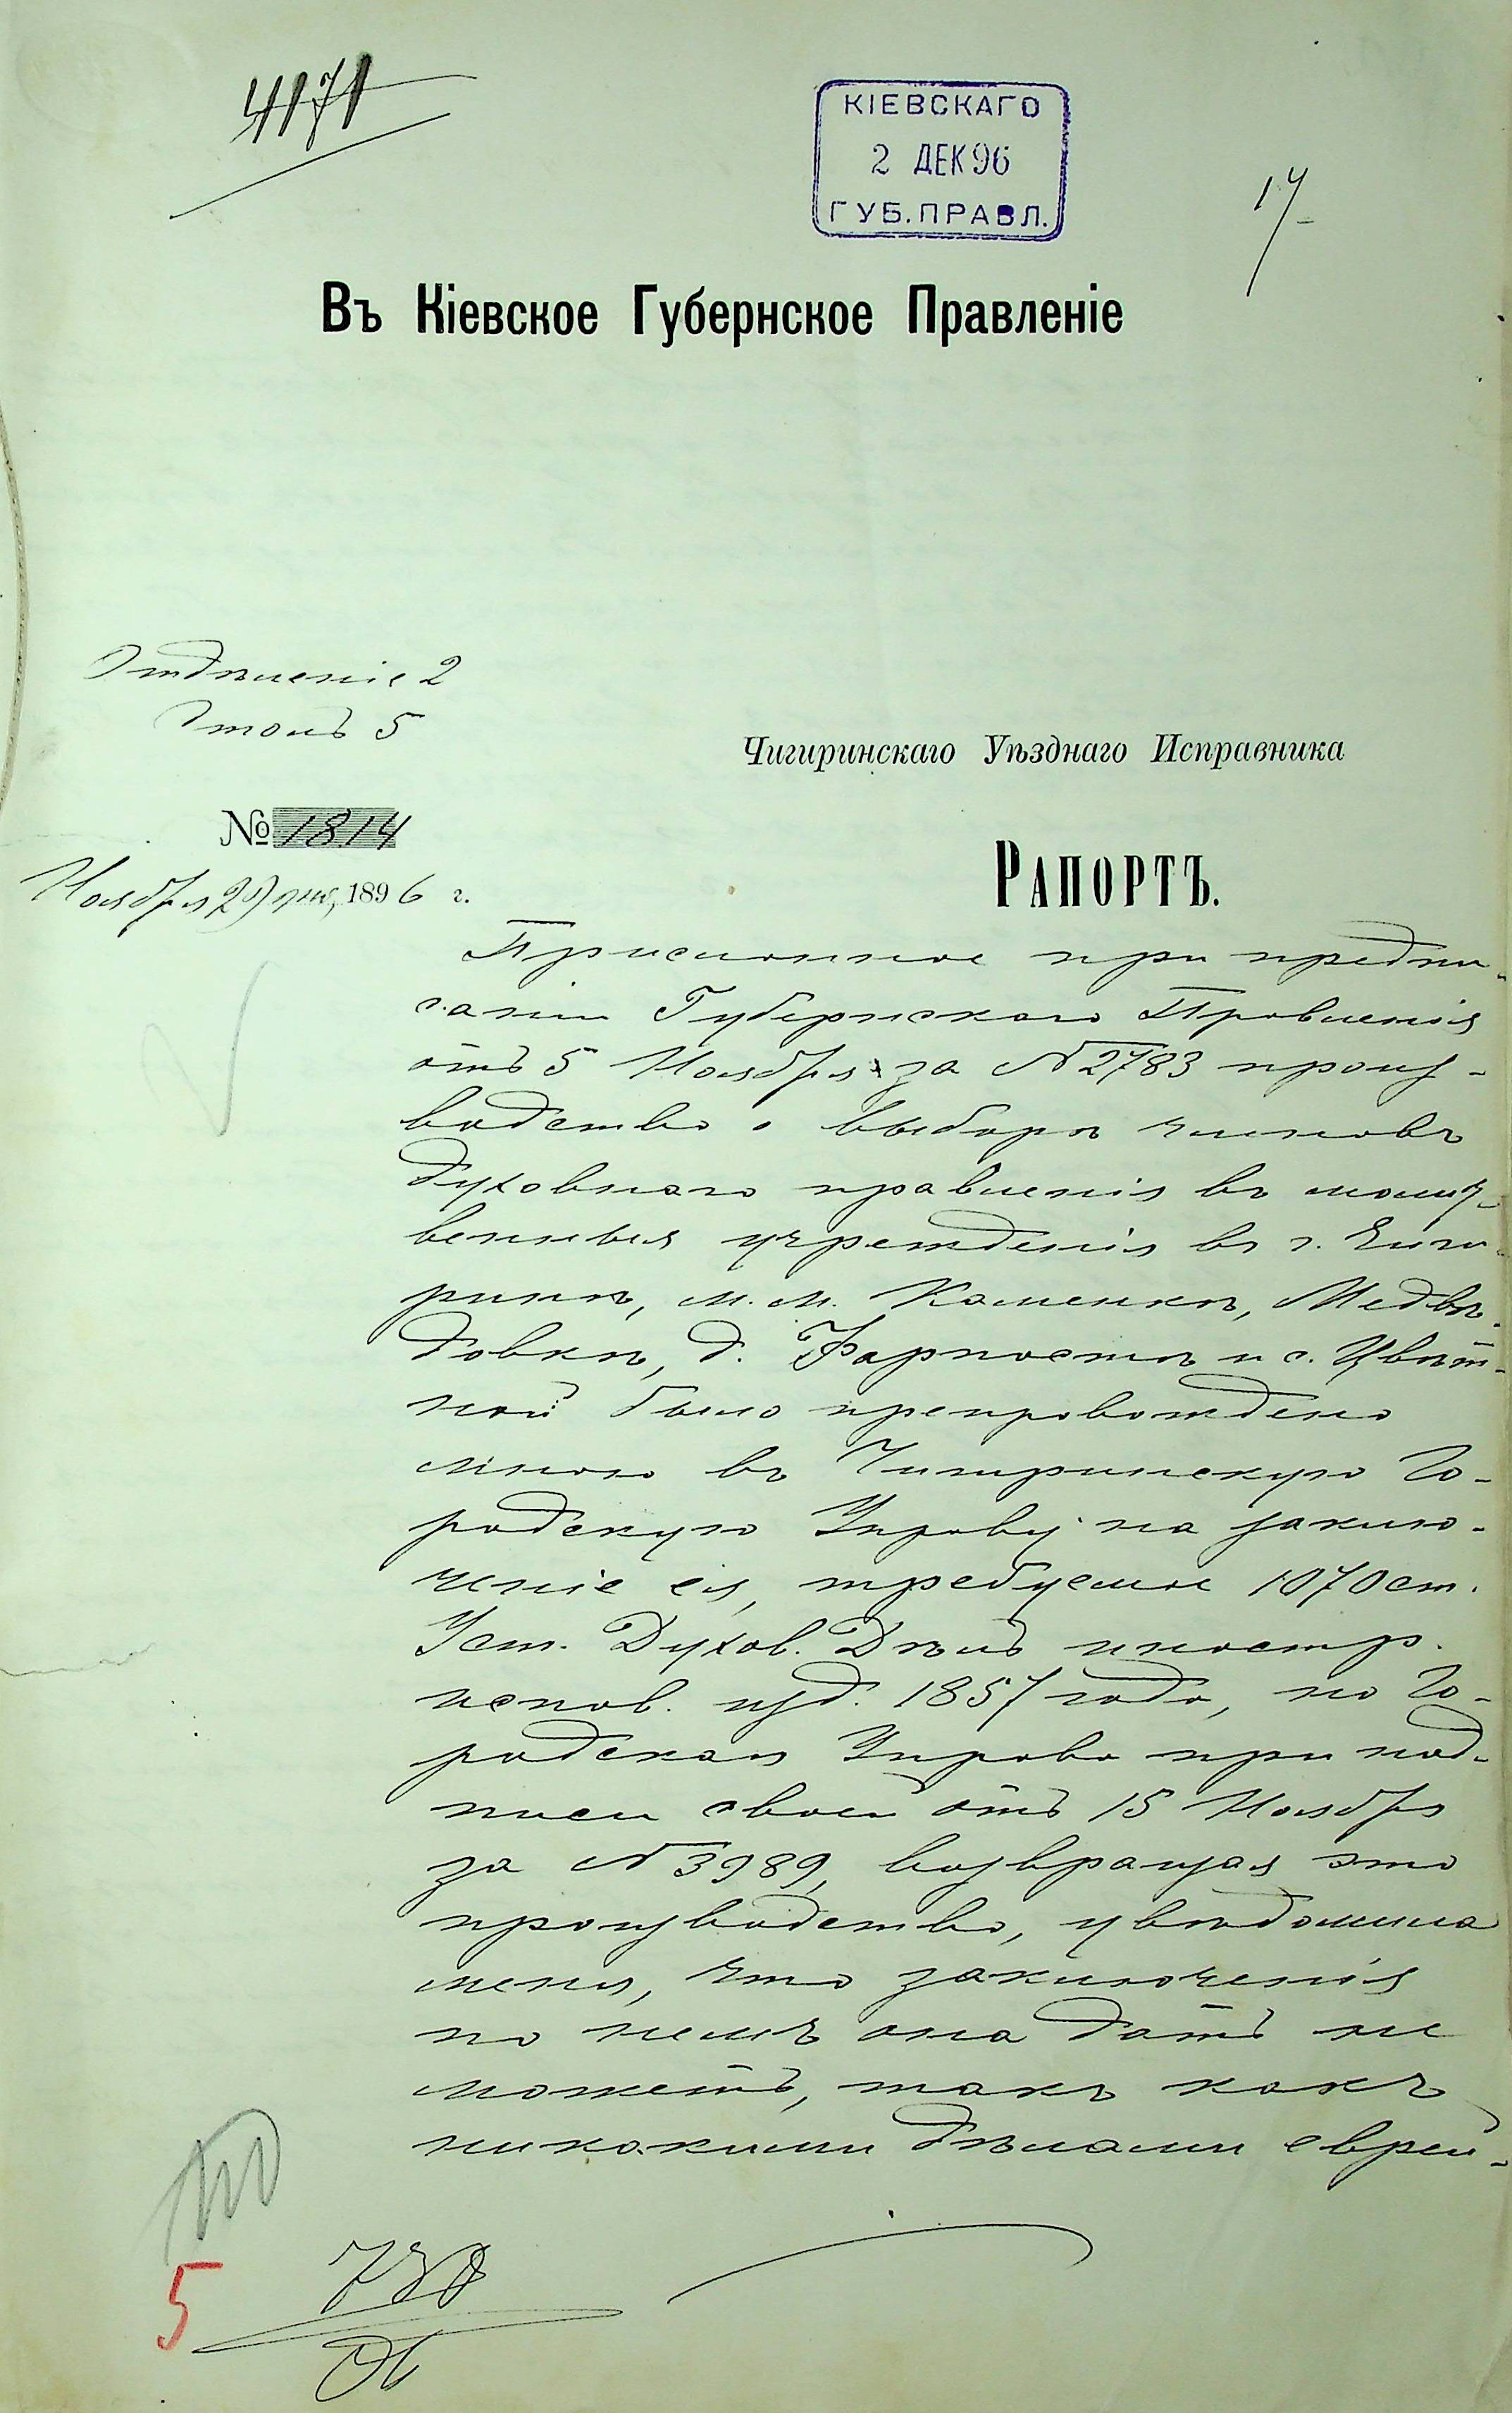 4171
КІЕВСКАГО
2 ДЕК 96
ГУБ. ПРАВЛ.
14
Въ Кіевское Губернское Правленіе
Отдѣленіе 2
Столъ 5
Чигиринскаго Уѣзднаго Исправника
№ 1814
Ноября 29 дня, 1896 г.
Рапортъ.
Присланное при предпи-
саніи Губернскаго Правленія
отъ 5 Ноября за №2783 произ-
водство о выборѣ членовъ
духовнаго правленія въ молит-
венныя учрежденія въ г. Чиги-
ринѣ, м.м. Каменкѣ, Медвѣ-
довкѣ, д. Фарпостѣ и с. Цвѣт-
ной было препровождено
мною въ Чигиринскую Го-
родскую Управу на заклю-
ченіе ея, требуемое 1070 ст.
Уст. Духов. Дѣлъ иностр.
испов. изд. 1857 года, но Го-
родская Управа при над-
писи своей отъ 15 Ноября
за №3989, возвращая это
производство, увѣдомила
меня, что заключенія
по немъ она дать не
можетъ, такъ какъ
никакими дѣлами еврей-
5